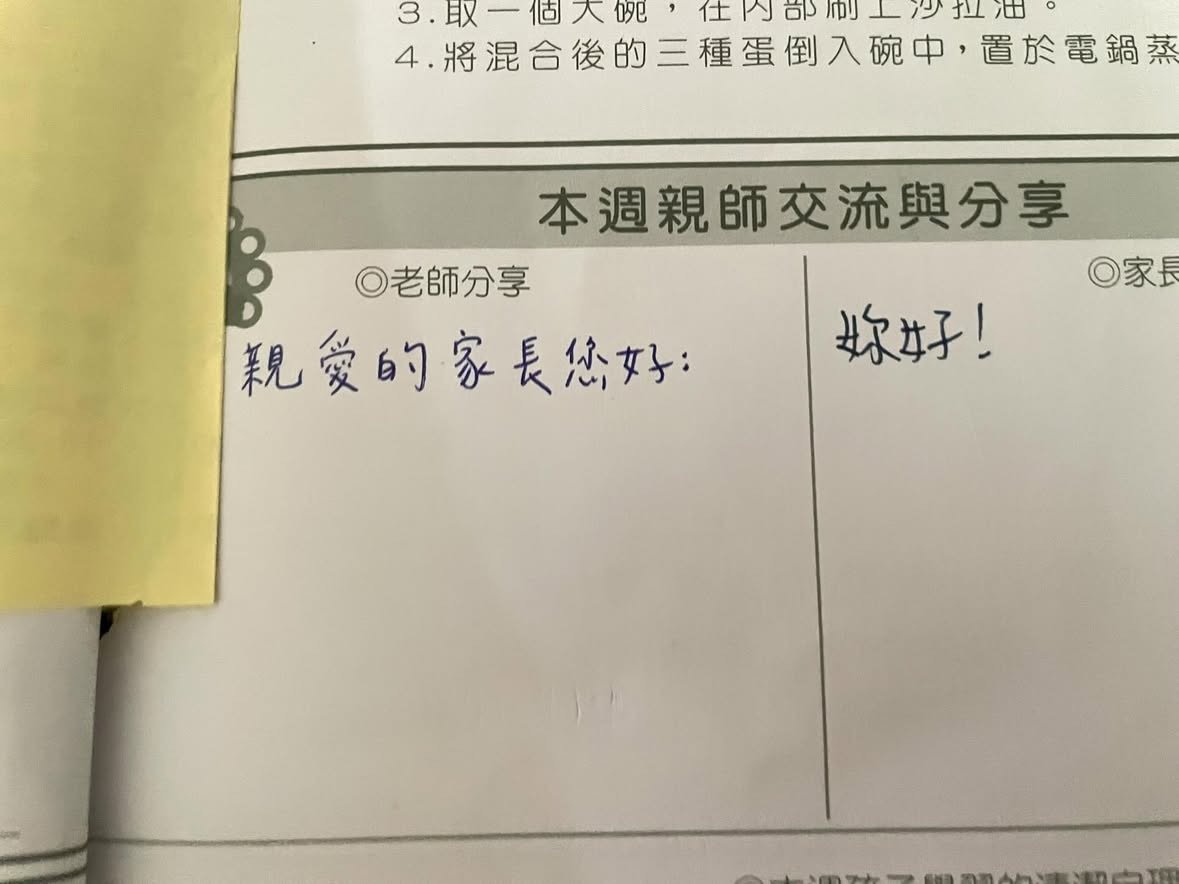 3.取一個大碗，在內部刷上沙拉油。
4.將混合後的三種蛋倒入碗中，置於電鍋蒸
本週親師交流與分享
◎老師分享
◎家長
親愛的家長您好：
妳好！
◎本週孩子學習的清潔自理